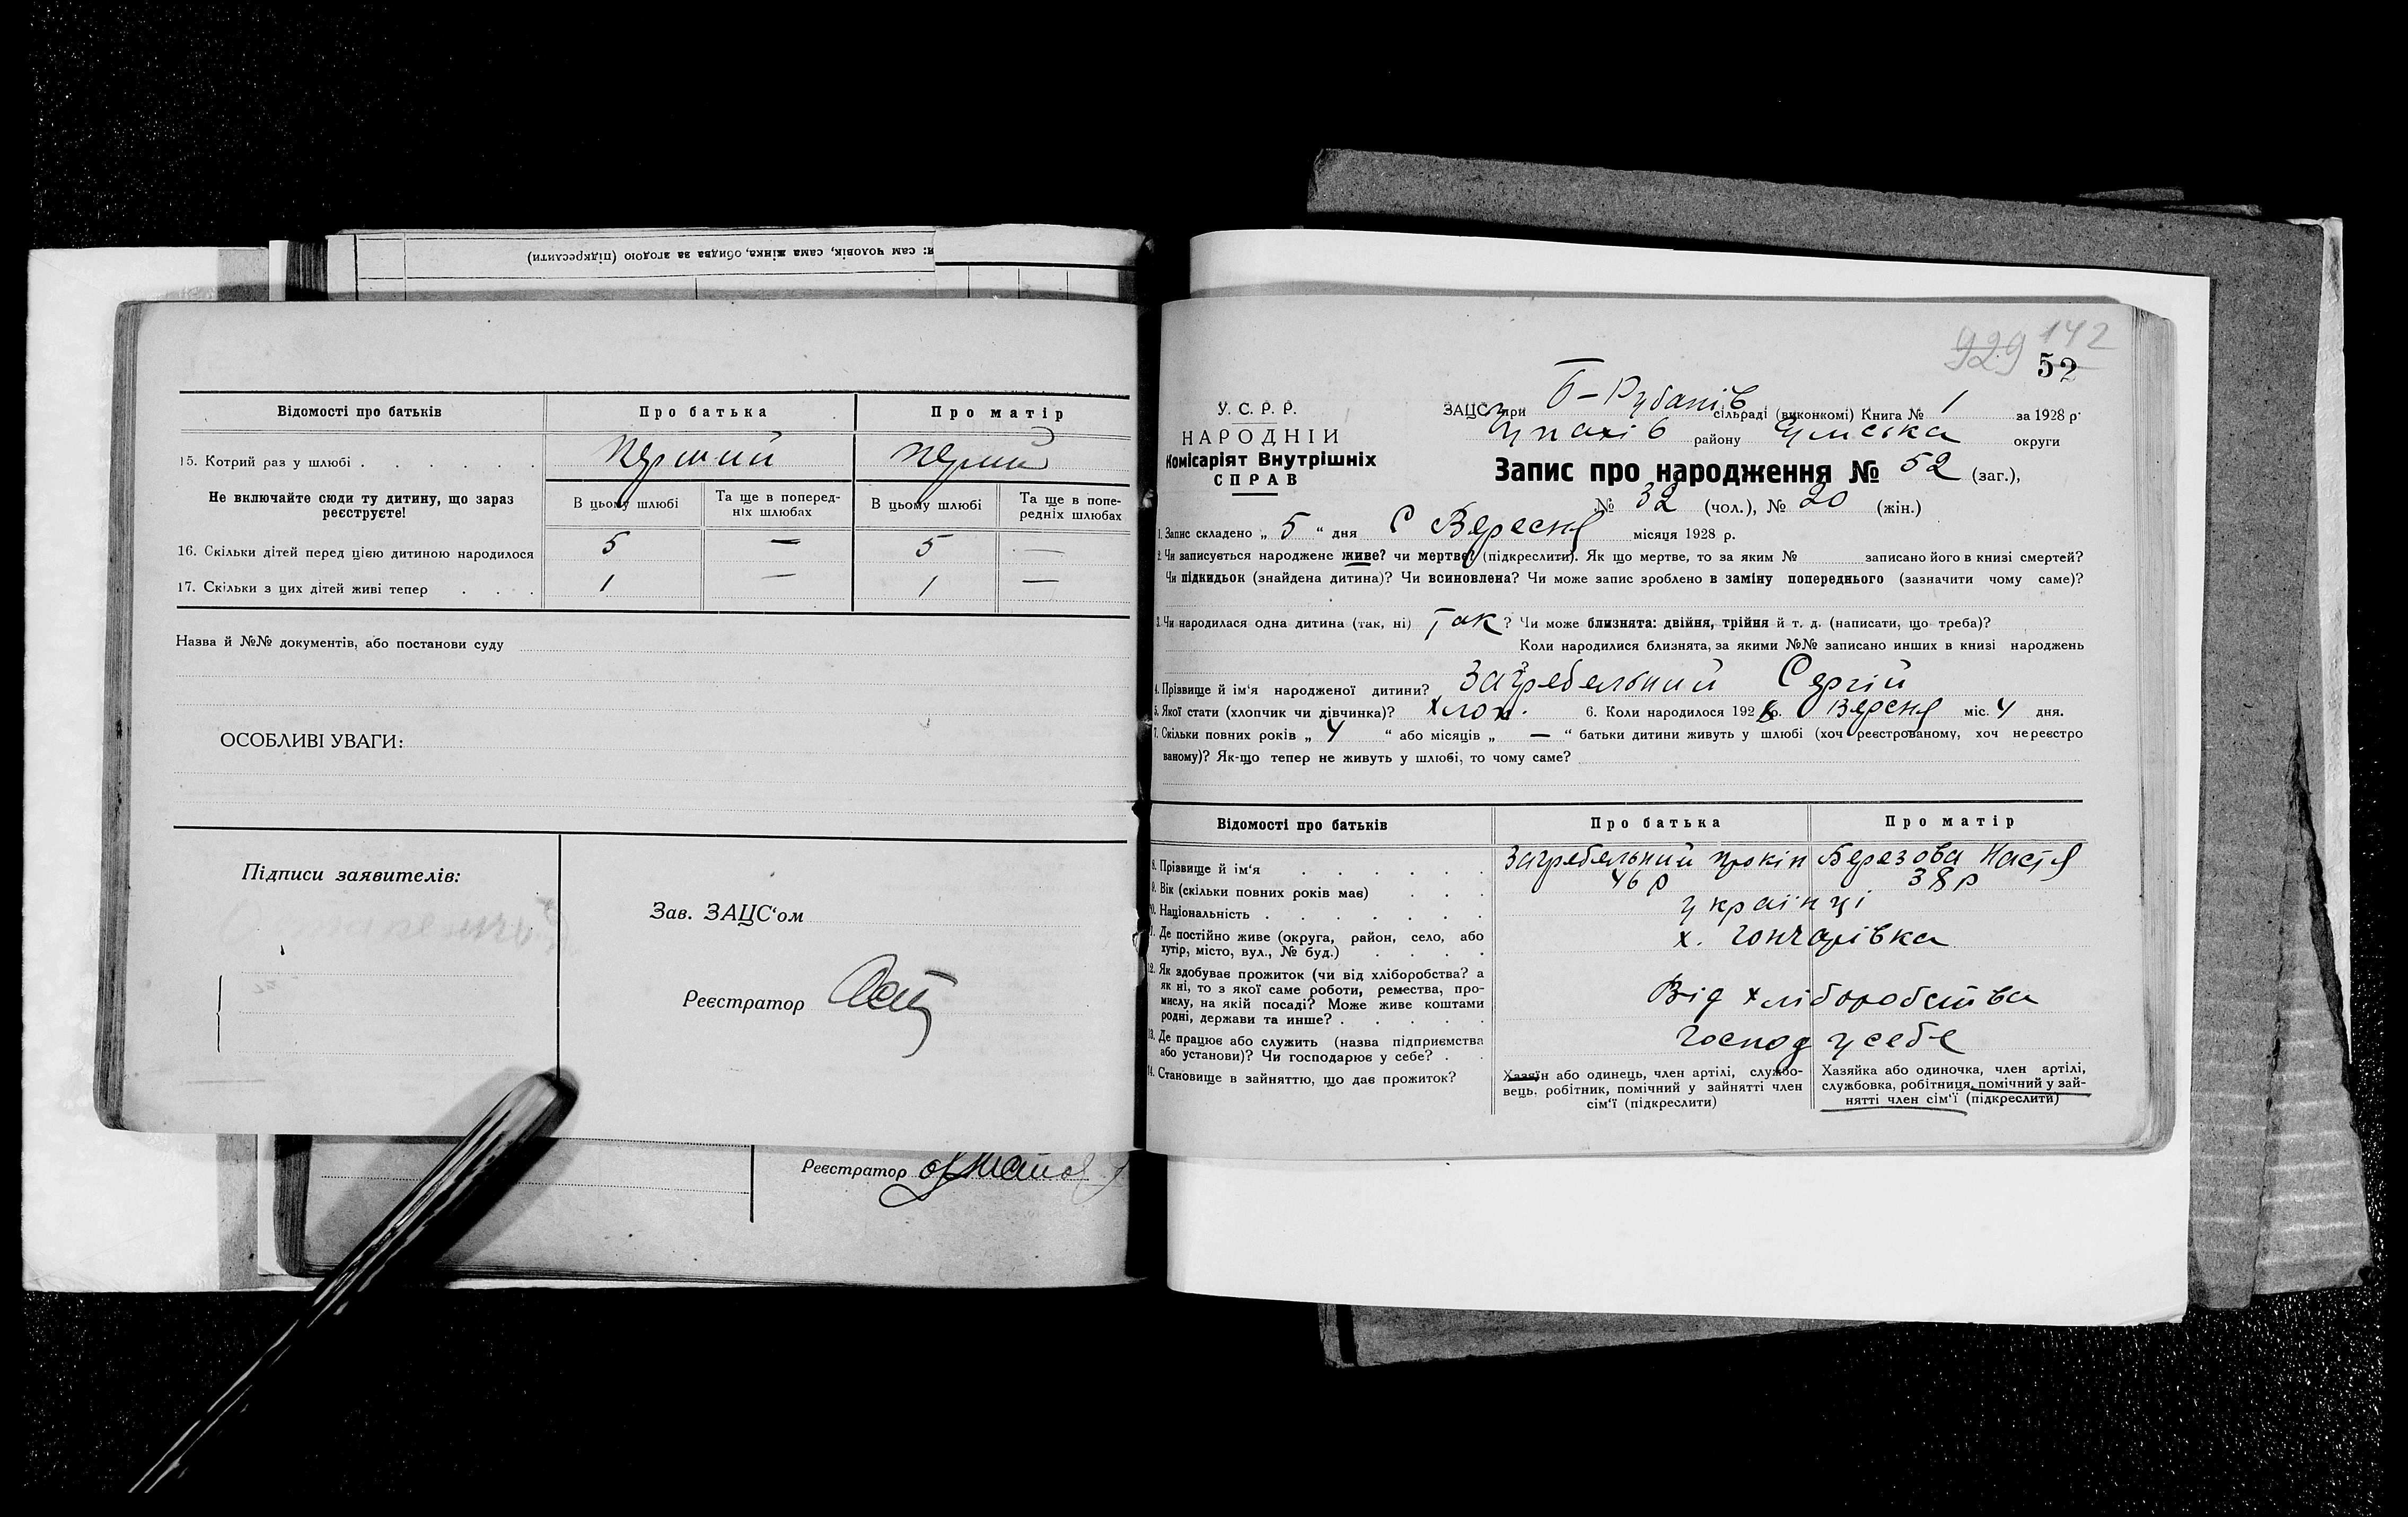 и: сам чоловік, сама жінка, обидва за згодою (підкреслити)
Відомості про батьків Про батька Про матір
15. Котрий раз у шлюбі . . . . . . перший перший
Не включайте сюди ту дитину, що зараз реєструєте!
В цьому шлюбі Та ще в попередніх шлюбах В цьому шлюбі Та ще в попередніх шлюбах
16. Скільки дітей перед цією дитиною народилося 5 — 5 —
17. Скільки з цих дітей живі тепер . . . 1 — 1 —
Назва й №№ документів, або постанови суду
ОСОБЛИВІ УВАГИ:
Підписи заявителів:
Зав. ЗАЦС'ом
Реєстратор
Реєстратор
929 142
52
У. С. Р. Р.
НАРОДНІЙ
Комісаріят Внутрішніх
СПРАВ
ЗАЦС при Б-Рубанів сільраді (виконкомі) Книга № 1 за 1928 р.
району Умська округи
Запис про народження № 52 (заг.),
№ 32 (чол.), № 20 (жін.)
1. Запис складено „ 5 “ дня Вересня місяця 1928 р.
2. Чи записується народжене живе? чи мертве? (підкреслити). Як що мертве, то за яким № записано його в книзі смертей?
Чи підкидьок (знайдена дитина)? Чи всиновлена? Чи може запис зроблено в заміну попереднього (зазначити чому саме)?
3. Чи народилася одна дитина (так, ні) Так ? Чи може близнята: двійня, трійня й т. д. (написати, що треба)?
Коли народилися близнята, за якими №№ записано инших в книзі народжень
4. Прізвище й ім'я народженої дитини? Загребельний Сергій
5. Якої стати (хлопчик чи дівчинка)? хлоп. 6. Коли народилося 1928 р. Вересня міс. 4 дня.
7. Скільки повних років „ 4 “ або місяців „ — “ батьки дитини живуть у шлюбі (хоч реєстрованому, хоч нереєстро
ваному)? Як-що тепер не живуть у шлюбі, то чому саме?
Відомості про батьків Про батька Про матір
8. Прізвище й ім'я . . . . . . Загребельний Прокіп Березова Настя
9. Вік (скільки повних років має) . . . 46 р 38 р
10. Національність . . . . . . . українці
11. Де постійно живе (округа, район, село, або
хутір, місто, вул., № буд.) . . . . х. Гончарівка
12. Як здобуває прожиток (чи від хліборобства? а
як ні, то з якої саме роботи, ремества, про-
мислу, на якій посаді? Може живе коштами
родні, держави та инше? . . . . . Від хліборобства
13. Де працює або служить (назва підприємства
або установи)? Чи господарює у себе? . . господ у себе
14. Становище в зайняттю, що дає прожиток?
Хазяїн або одинець, член артілі, службо-
вець, робітник, помічний у зайнятті член
сім'ї (підкреслити)
Хазяйка або одиночка, член артілі,
службовка, робітниця, помічний у зай-
нятті член сім'ї (підкреслити)